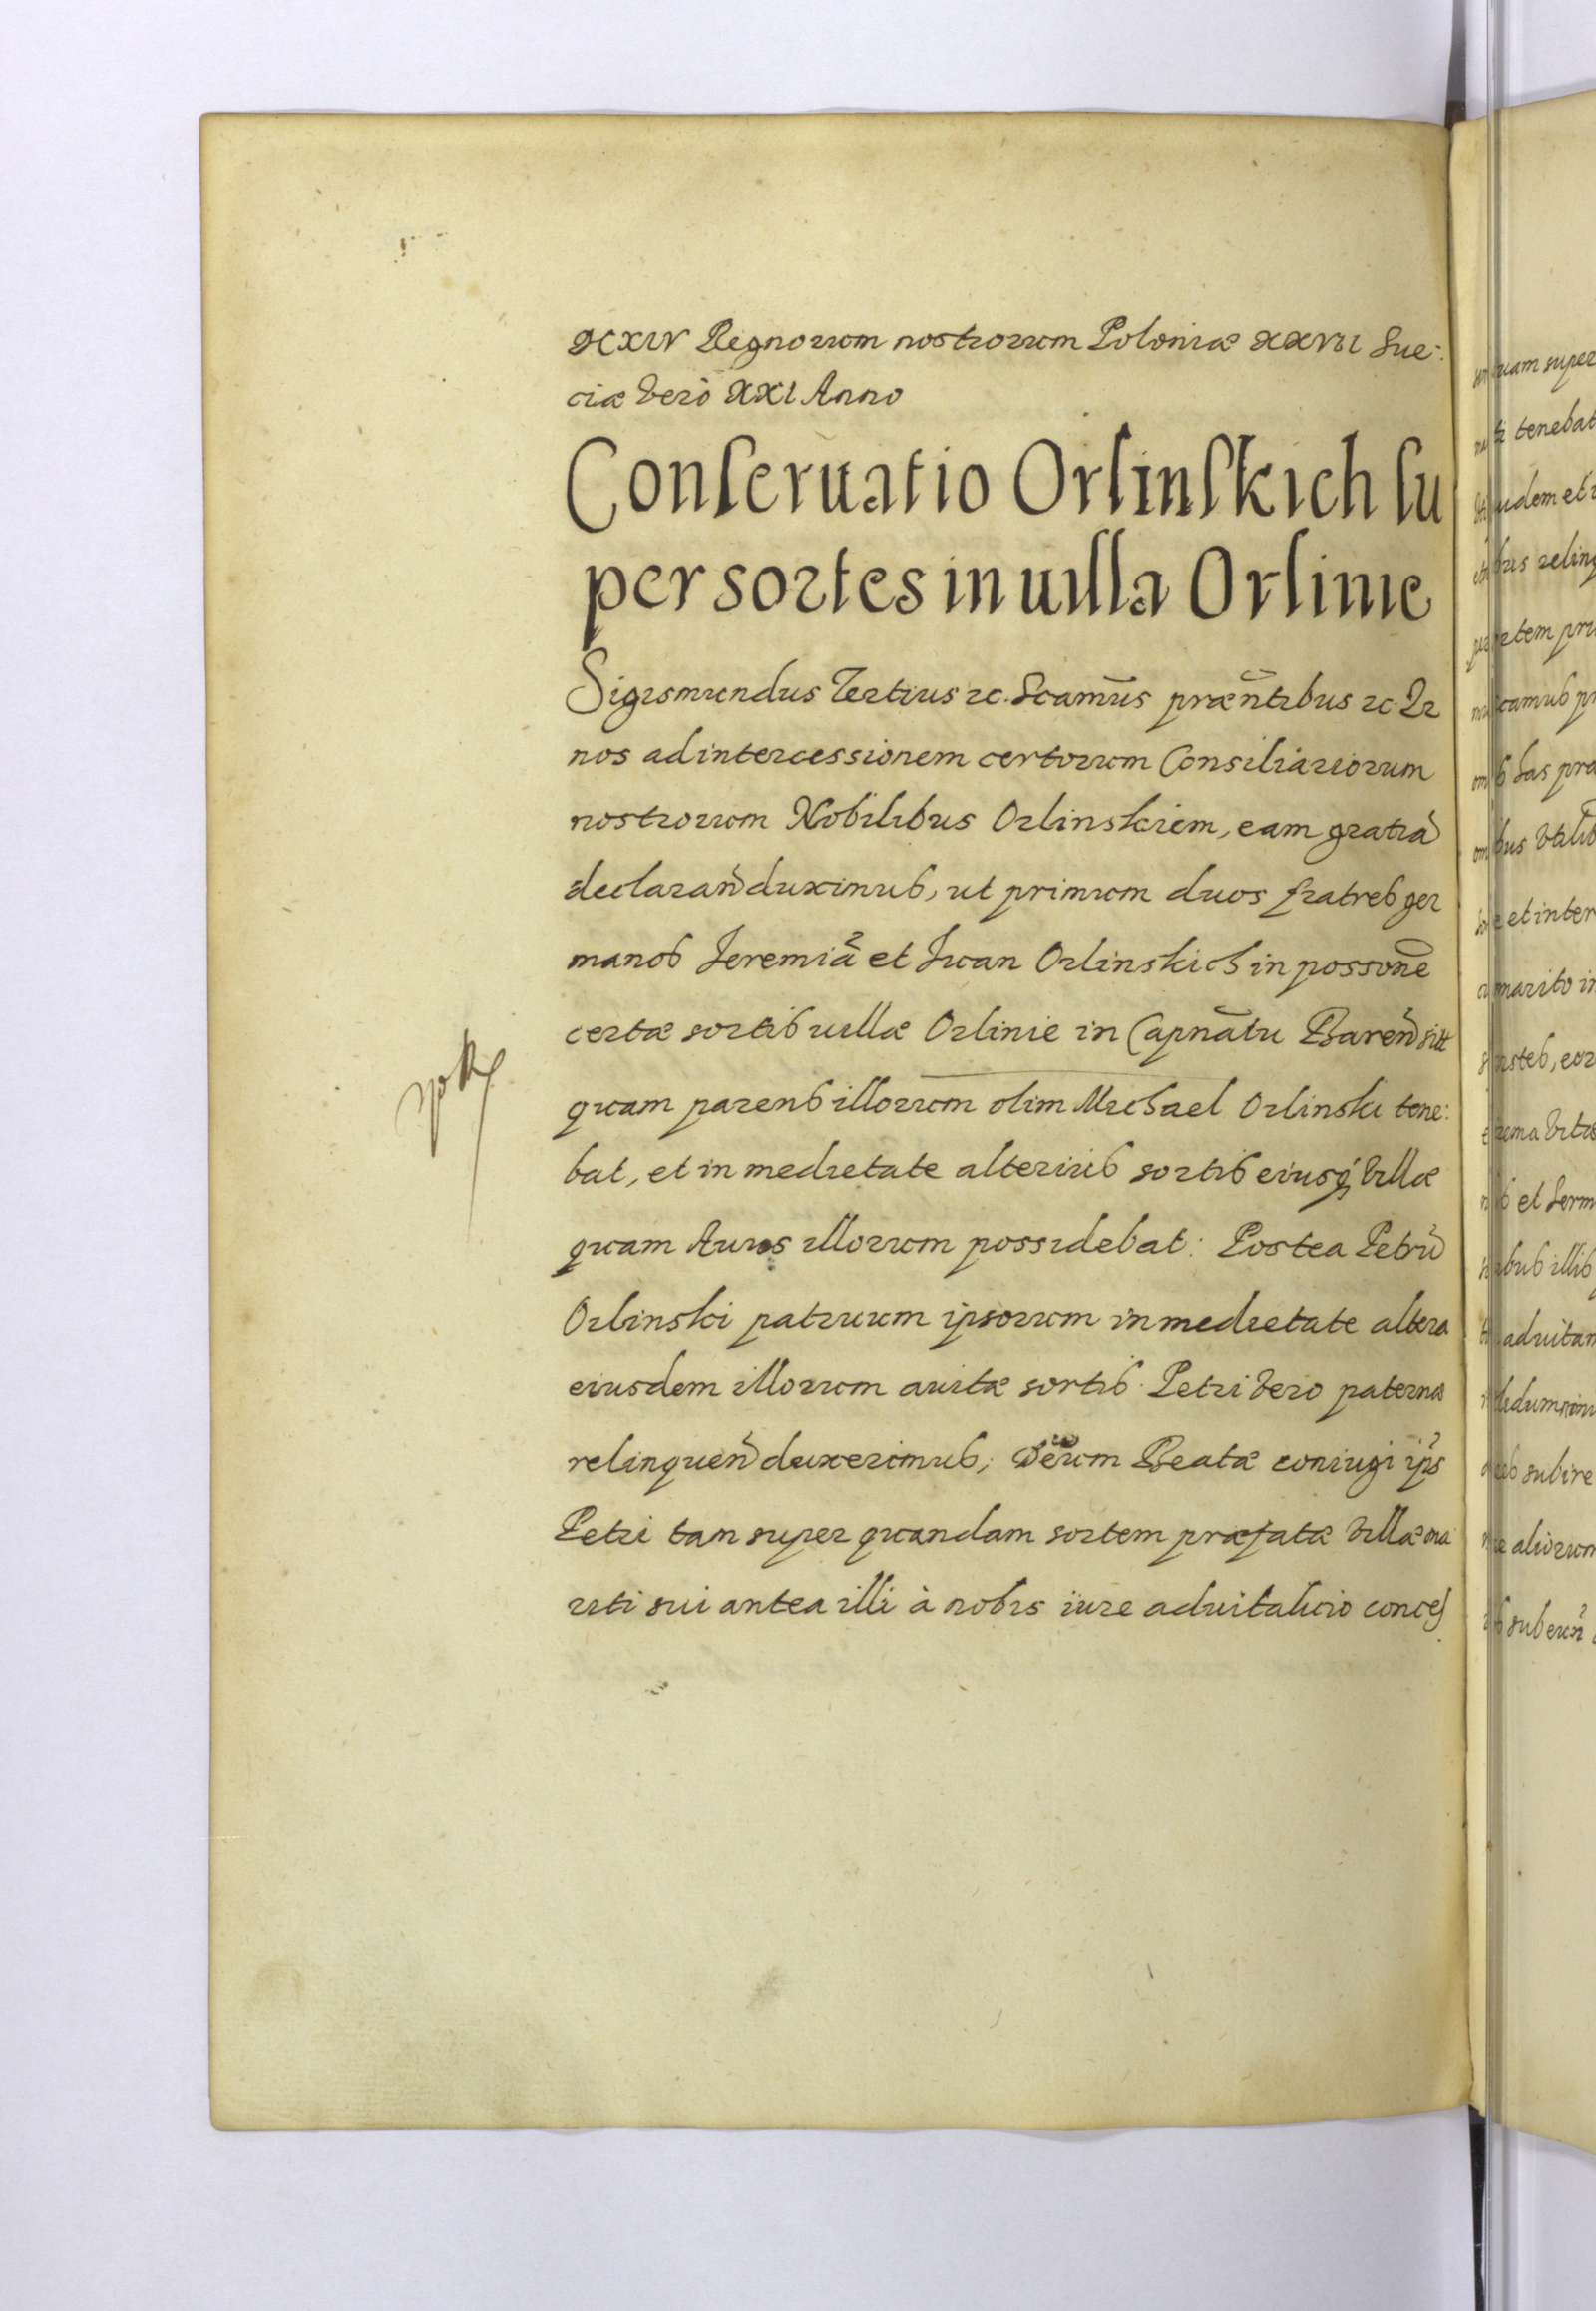 DCXIV Regnorum nostrorum Poloniæ XXVII Sue:
ciæ vero XXI Anno
Conseruatio Orlinskich su
per sortes in uilla Orlinie
Sigismundus Tertius &c. Scam̄us præn̄tibus &c. Qr
nos ad intercessionem certorum Consiliariorum
nostrorum Nobilibus Orlinskiem, eam gratiã
declaran̄ duximus, ut primum duos fratres ger
manos Jeremiã et Iwan Orlinskich in posson̄e
certæ sortis uillæ Orlinie in Capn̄atu Baren̄ sitt
quam parens illorum olim Michael Orlinski tene:
bat, et in medietate alterius sortis eiusq́ villæ
quam Auus illorum possidebat: Postea Petrũ
Orlinski patruum ipsorum in medietate altera
eiusdem illorum auitæ sortis. Petri vero paterna
relinquen̄ duxerimus; Verum Beatæ coniugi ip̄s
Petri tam super quandam sortem præfatæ villæ ma
riti sui antea illi à nobis iure aduitalicio conces
quam super
tenebat
udem et
bus relinq
rtem pri
camus pr
has pra
bus
et inter
marito in
eor
ma vitæ
et herm
bus illis
aduitan
subire
aliorum